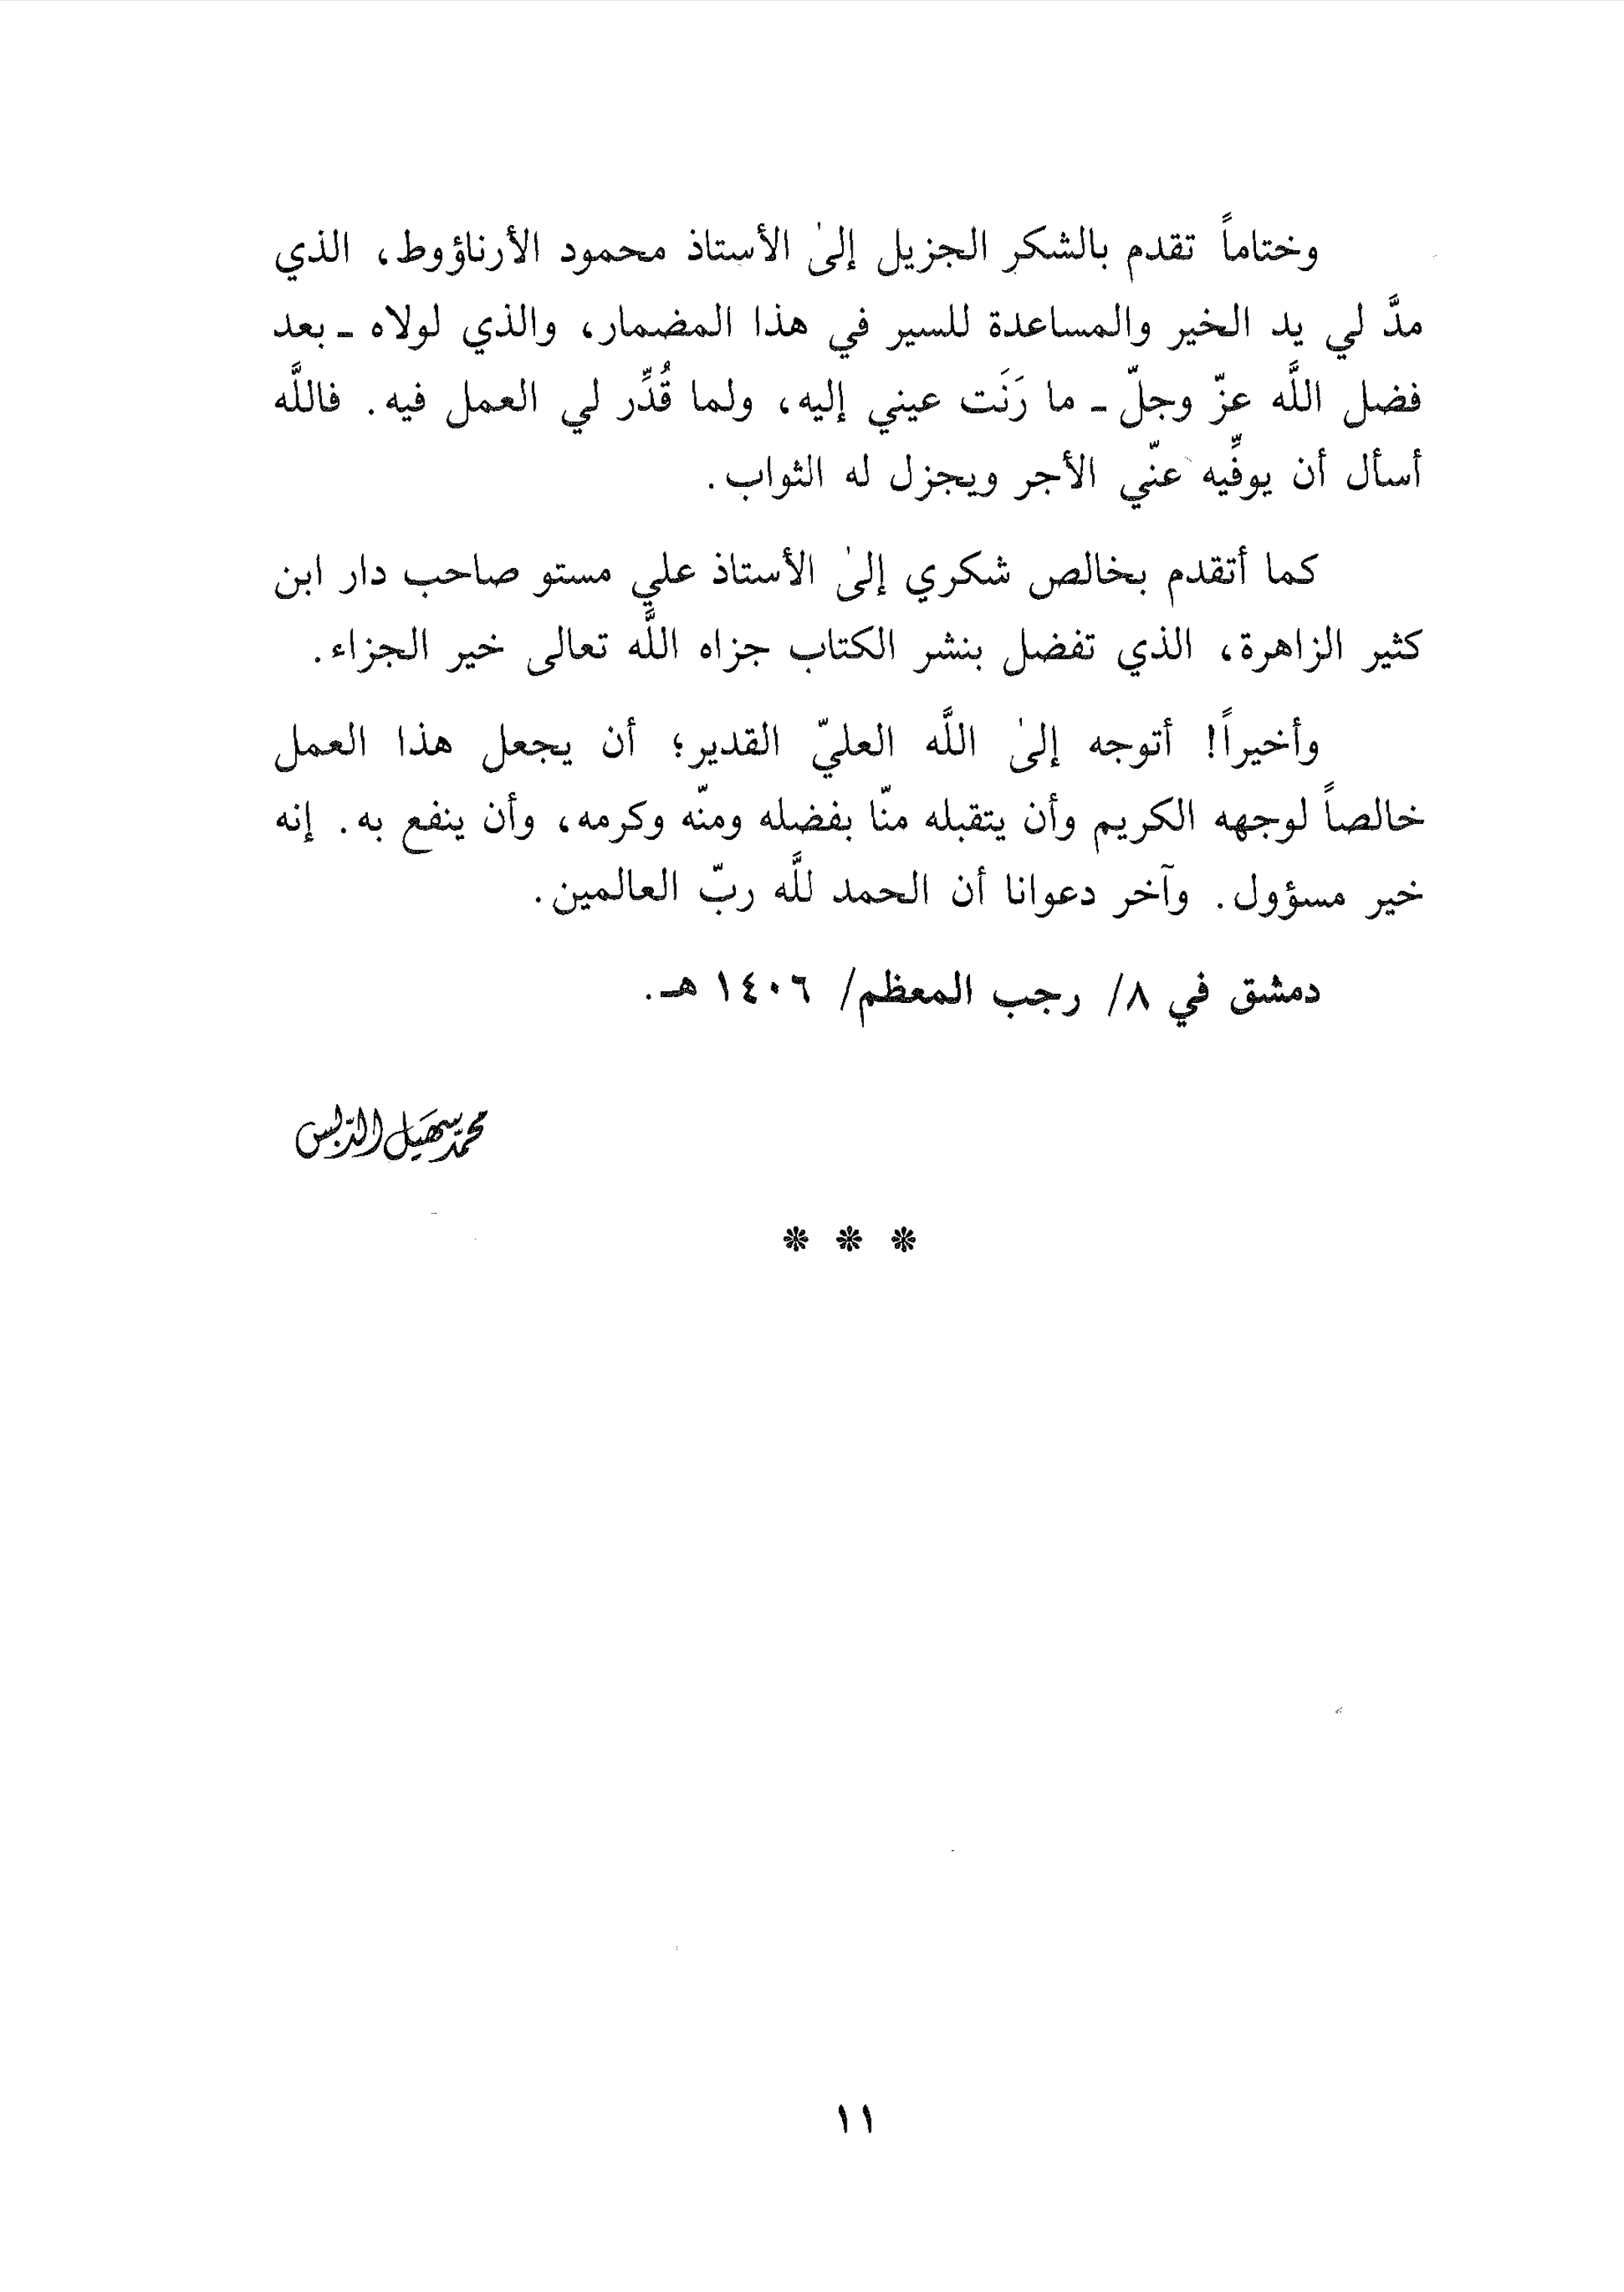 وختاماً تقدم بالشكر الجزيل إلىٰ الأستاذ محمود الأرناؤوط، الذي
مدَّ لي يد الخير والمساعدة للسير في هذا المضمار، والذي لولاه ـ بعد
فضل اللَّه عزّ وجلّ ـ ما رَنَت عيني إليه، ولما قُدِّر لي العمل فيه. فاللَّه
أسأل أن يوفِّيه عنّي الأجر ويجزل له الثواب.
كما أتقدم بخالص شكري إلىٰ الأستاذ علي مستو صاحب دار ابن
كثير الزاهرة، الذي تفضل بنشر الكتاب جزاه اللَّه تعالى خير الجزاء.
وأخيراً! أتوجه إلىٰ اللَّه العليّ القدير؛ أن يجعل هذا العمل
خالصاً لوجهه الكريم وأن يتقبله منّا بفضله ومنّه وكرمه، وأن ينفع به. إنه
خير مسؤول. وآخر دعوانا أن الحمد للَّه ربّ العالمين.
دمشق في ٨/ رجب المعظم/ ١٤٠٦ هـ.
محمد سهيل الدبس
* * *
١١